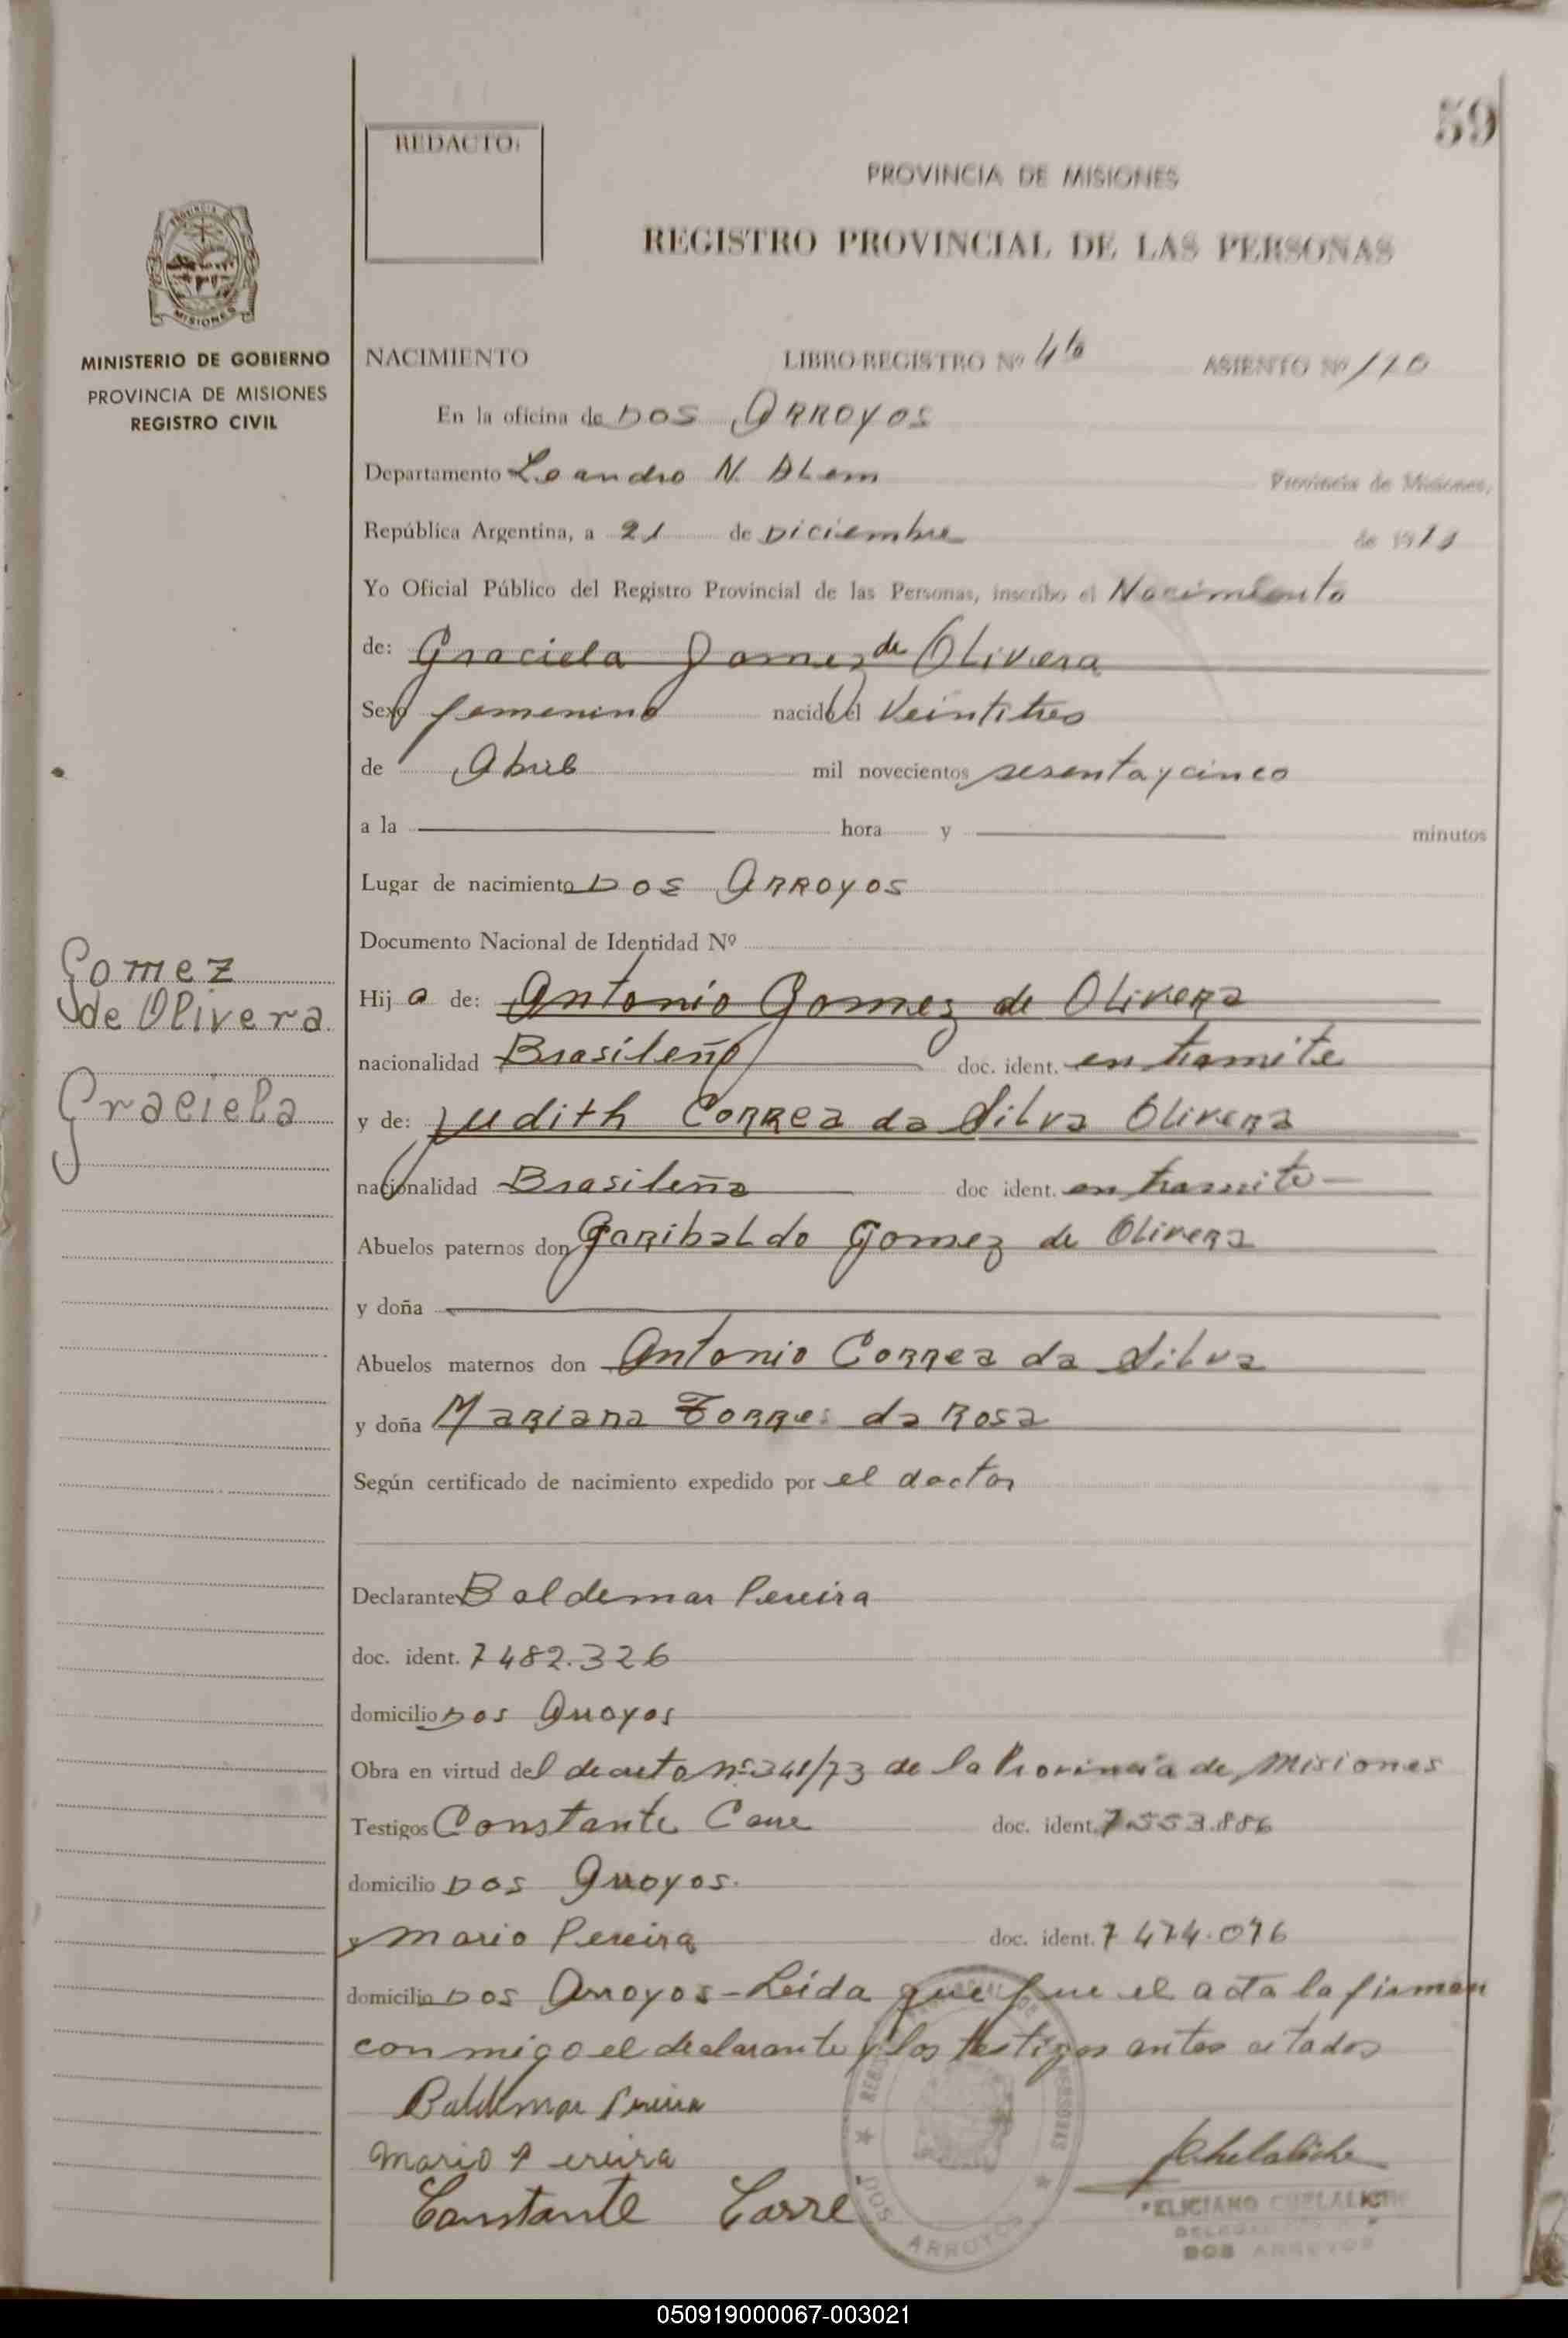 59
REDACTO:
PROVINCIA DE MISIONES
REGISTRO PROVINCIAL DE LAS PERSONAS
MINISTERIO DE GOBIERNO
PROVINCIA DE MISIONES
REGISTRO CIVIL
NACIMIENTO LIBRO-REGISTRO Nº ASIENTO Nº
En la oficina de Dos Arroyos
Departamento Leandro N. Alem Provincia de Misiones,
República Argentina, a 21 de Diciembre de 19
Yo Oficial Público del Registro Provincial de las Personas, inscribo el Nacimiento
de: Graciela Gomez de Olivera
Sexo femenino nacido el Veintitres
de Abril mil novecientos sesenta y cinco
a la hora y minutos
Lugar de nacimiento Dos Arroyos
Documento Nacional de Identidad Nº
Gomez
de Olivera
Graciela
Hij a de: Antonio Gomez de Olivera
nacionalidad Brasileño doc. ident. en tramite
y de: Judith Correa da Silva Olivera
nacionalidad Brasileña doc ident. en tramite
Abuelos paternos don Garibaldo Gomez de Olivera
y doña
Abuelos maternos don Antonio Correa da Silva
y doña Mariana Torres da Rosa
Según certificado de nacimiento expedido por el doctor
Declarante Baldemar Pereira
doc. ident. 7482.326
domicilio Dos Arroyos
Obra en virtud del decreto nº 341/73 de la Provincia de Misiones
Testigos Constante Carre doc. ident. 7.553.886
domicilio Dos Arroyos.
y Mario Pereira doc. ident. 7 474.076
domicilio Dos Arroyos - Leida que fue el acta la firman
conmigo el declarante y los testigos antes citados
Baldemar Pereira
Mario Pereira
Constante Carre
DOS ARROYOS
DOS ARROYOS
050919000067-003021